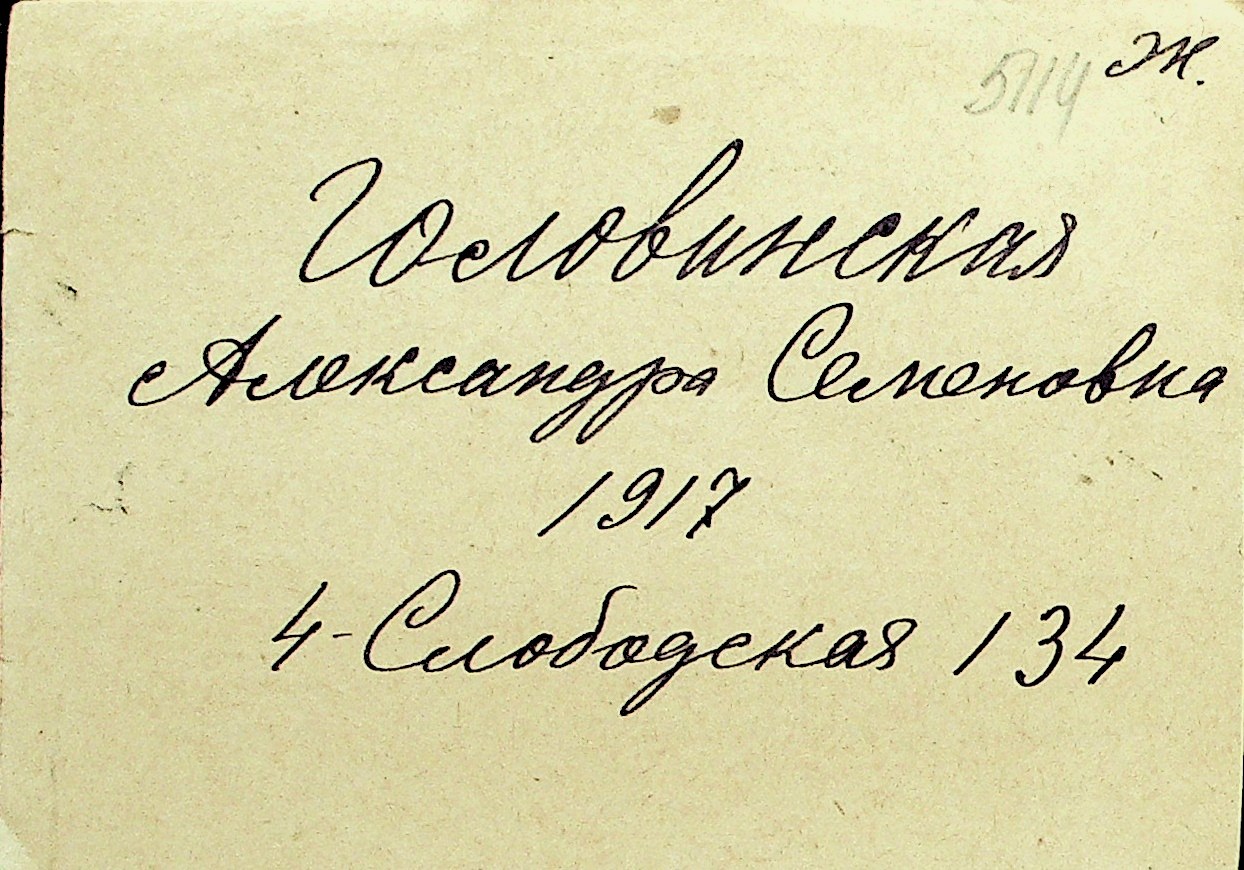 5114 ж.
Головинская
Александра Семеновна
1917
4-Слободская 134